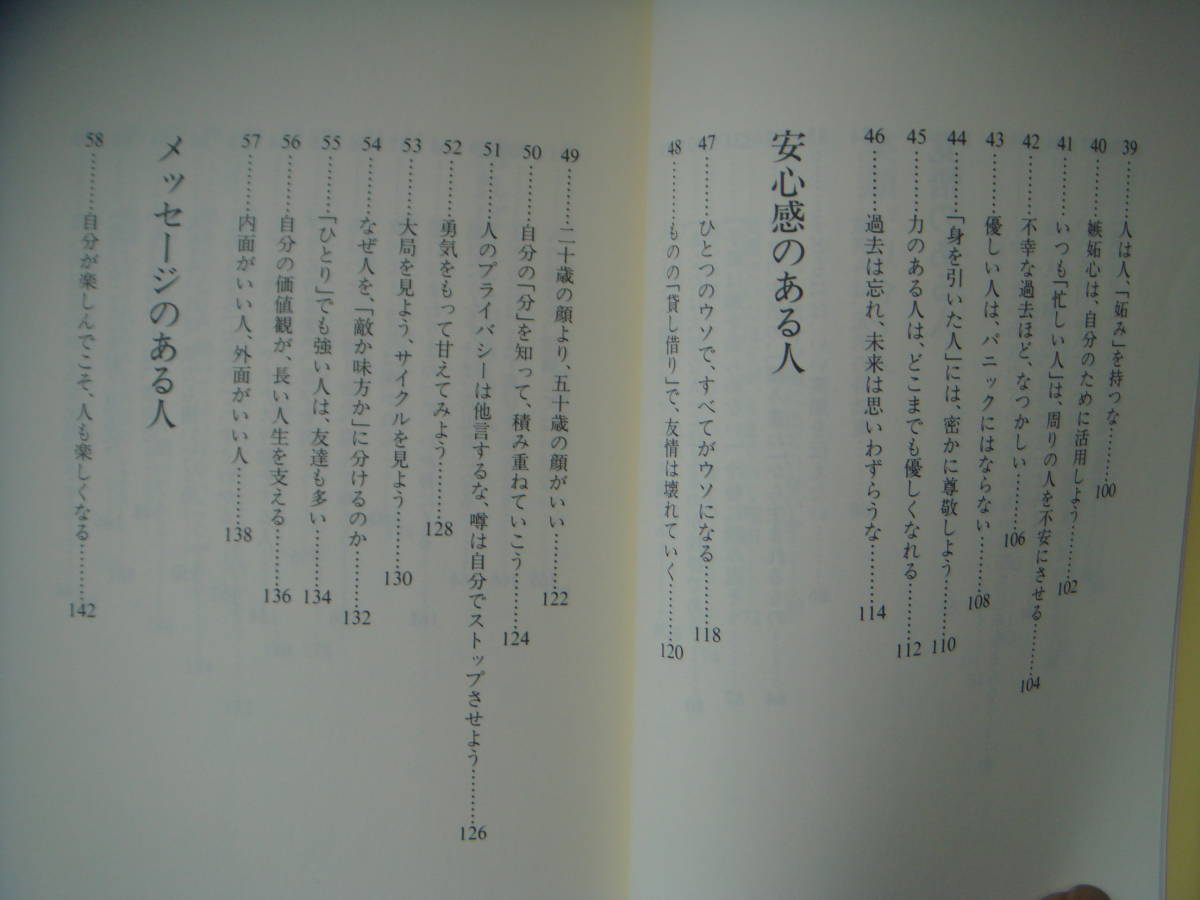 39………人は人、「妬み」を持つな………100
40………嫉妬心は、自分のために活用しよう………102
41………いつも「忙しい人」は、周りの人を不安にさせる………104
42………不幸な過去ほど、なつかしい………106
43………優しい人は、パニックにはならない………108
44………「身を引いた人」には、密かに尊敬しよう………110
45………力のある人は、どこまでも優しくなれる………112
46………過去は忘れ、未来は思いわずらうな………114
安心感のある人
47………ひとつのウソで、すべてがウソになる………118
48………ものの「貸し借り」で、友情は壊れていく………120
49………二十歳の顔より、五十歳の顔がいい………122
50………自分の「分」を知って、積み重ねていこう………124
51………人のプライバシーは他言するな、噂は自分でストップさせよう………126
52………勇気をもって甘えてみよう………128
53………大局を見よう、サイクルを見よう………130
54………なぜ人を、「敵か味方か」に分けるのか………132
55………「ひとり」でも強い人は、友達も多い………134
56………自分の価値観が、長い人生を支える………136
57………内面がいい人、外面がいい人………138
メッセージのある人
58………自分が楽しんでこそ、人も楽しくなる………142